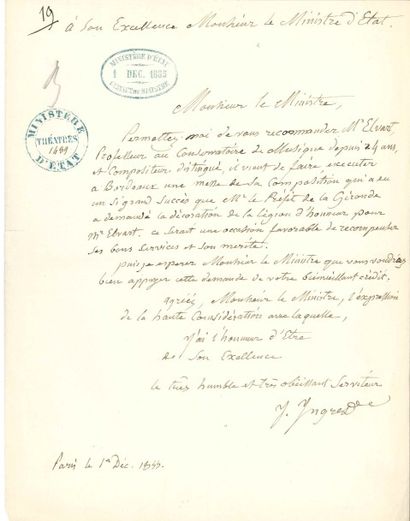 19
à Son Excellence Monsieur le Ministre d'Etat.
MINISTÈRE D'ÉTAT
1 DEC. 1855
MINISTERE
THEATRES
D'ETAT
Monsieur le Ministre,
Permettez moi de vous recommander Mr Elvart,
Professeur au Conservatoire de Musique depuis 24 ans,
et Compositeur distingué, il vient de faire executer
à Bordeaux une messe de sa Composition qui a eu
un si grand Succès que Mr le Préfet de la Gironde
a demandé la décoration de la Légion d'honneur pour
Mr Elvart. ce serait une occasion favorable de recompenser
ses bons services et son merite.
puis-je esperer Monsieur le Ministre que vous voudrez
bien appuyer cette demande de votre bienveillant crédit.
agréez, Monsieur le Ministre, l'expression
de la haute Considération avec laquelle,
j'ai l'honneur d'Etre
de Son Exellence
le très humble et très obéissant Serviteur
J. Ingres
Paris le 1er Déc. 1855.